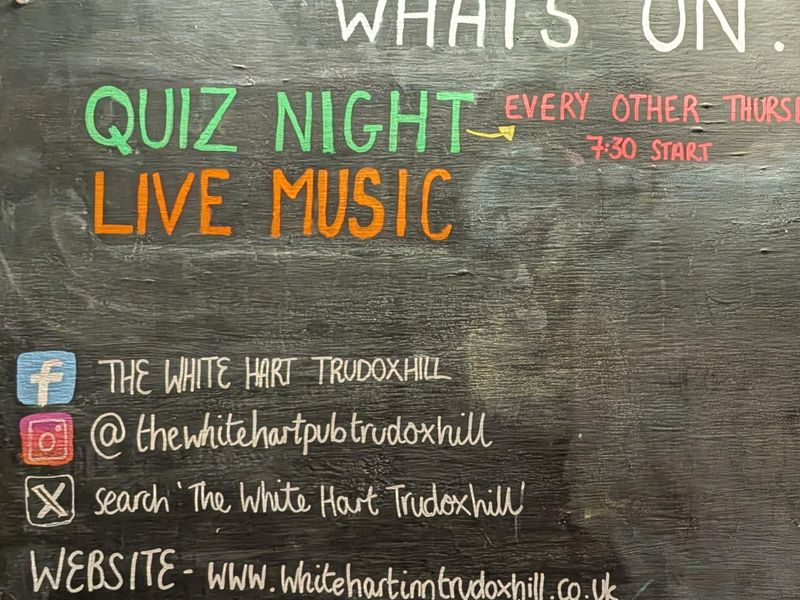 WHATS ON.
QUIZ NIGHT EVERY OTHER THURSD
7:30 START
LIVE MUSIC
f THE WHITE HART TRUDOXHILL
@thewhitehartpubtrudoxhill
X search 'The White Hart Trudoxhill'
WEBSITE - www.whitehartinntrudoxhill.co.uk